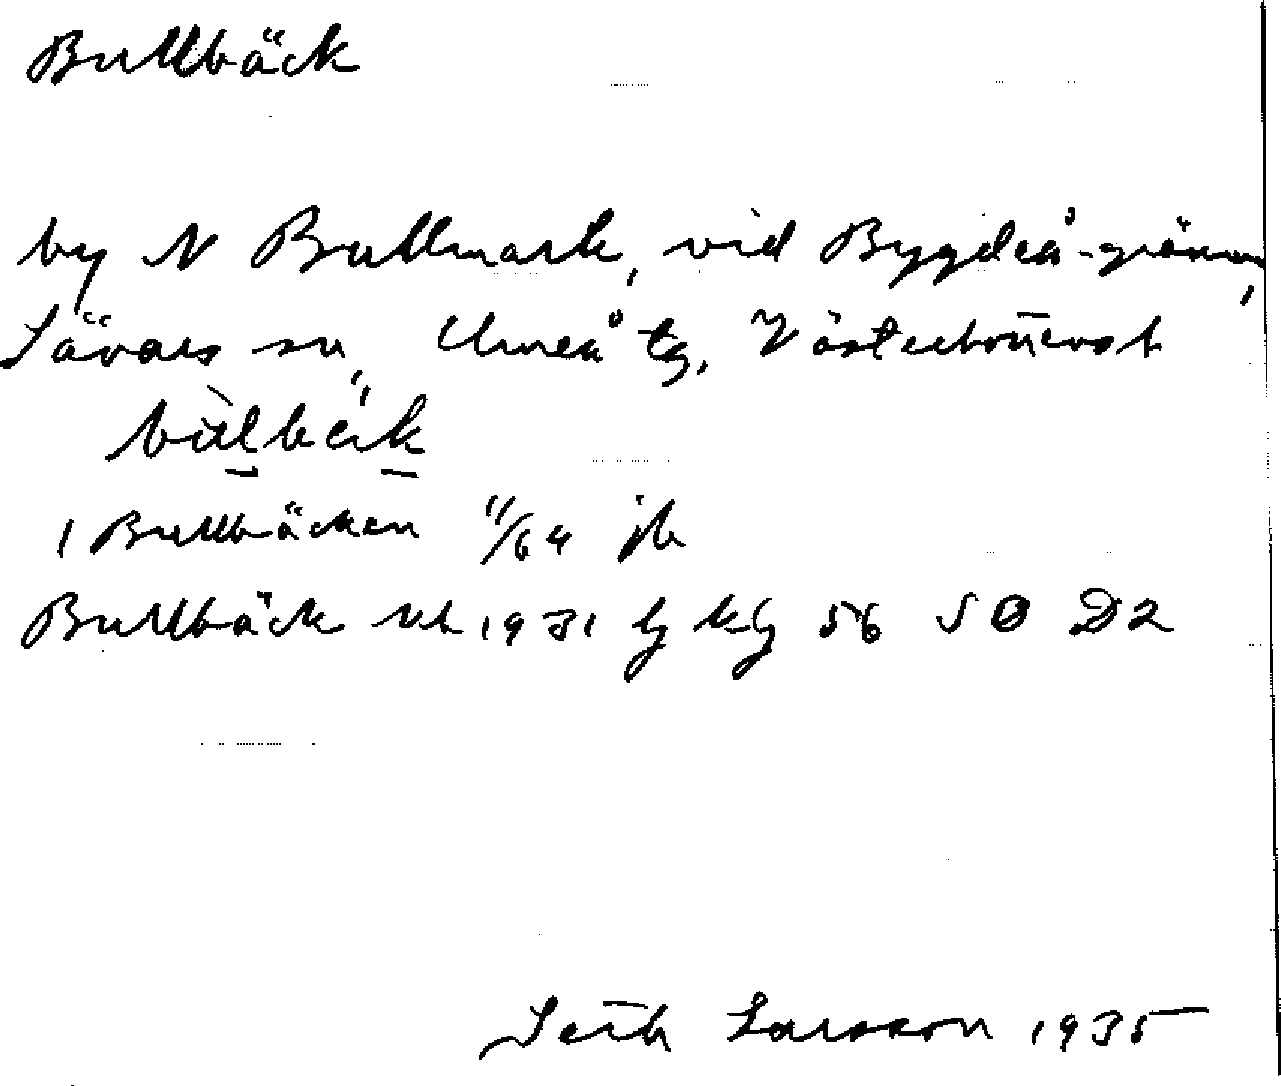 Bullbäck
by N Bullmark, vid Bygdeå-gränsen,
Sävars sn, Umeå tg, Västerbottens l
bu̇lbäk
1 Bullbäcken 11/64 jb
Bullbäck 1931 kbl 56 SØ D2
Larsson 1935